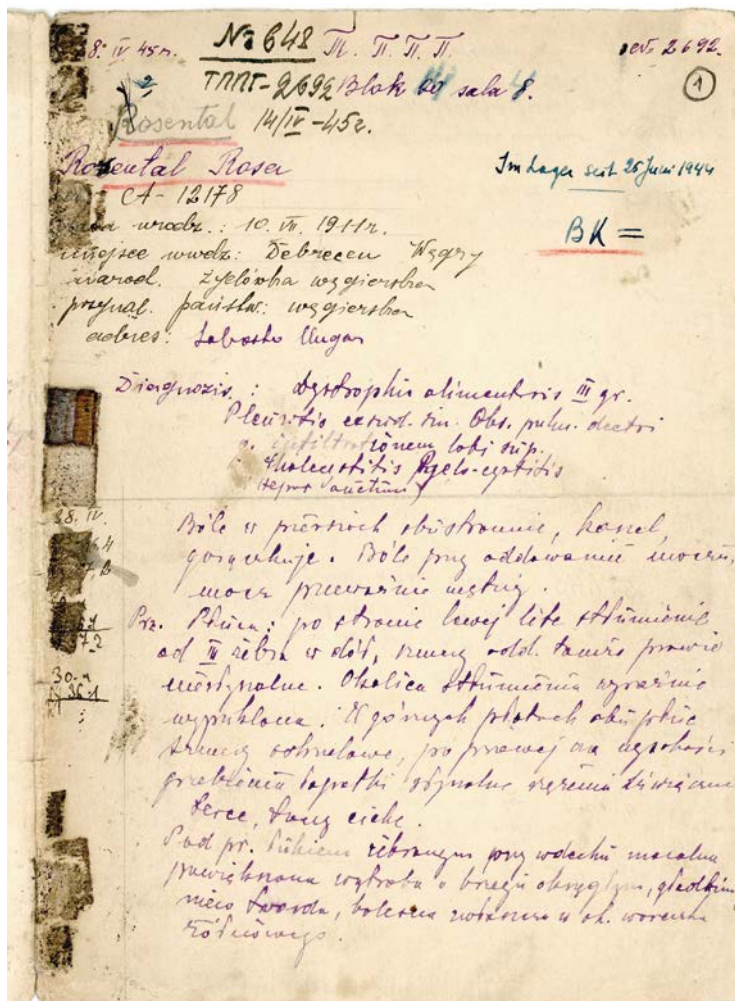 8. IV 45 r. № 648 Т. П. П. П. 2692.
1
ТППГ-2692 Blok sala 8.
Rosental 14/IV-45г.
Rosental Rosa Im Lager seit 25 Juni 1944
A-12178
BK =
wrodz.: 10. VI. 1911r.
miejsce urodz: Debrecen Węgry
narod. żydówka węgierska
przynal. państw: węgierska
adres:
Diagnozis: dystrophia alimentris III gr.
Pleuritis exsud. sin. Obs. pulm. dextri
infiltrationem lobi sup.
Pyelo-cystitis
28. IV. Bóle w piersiach obustronnie, kaszel,
gorączkuje. Bóle przy oddawaniu moczu,
mocz przeważnie mętny.
Prz. Płuca: po stronie lewej lite stłumienie
od III żebra w dół, szmery odd. tamże prawie
niesłyszalne. Okolica stłumienia wyraźnie
wypuklona. W górnych płatach obu płuc
szmery oskrzelowe, po prawej na wysokości
grzebienia łopatki słyszalne rzężenia dźwięczne
30. IV
36.1
Serce, tony ciche.
Pod pr. łukiem żebrowym przy wdechu macalna
powiększona wątroba o brzegu okrągłym, gładkim
nieco twarda, bolesna zwłaszcza w ok. woreczka
żółciowego.